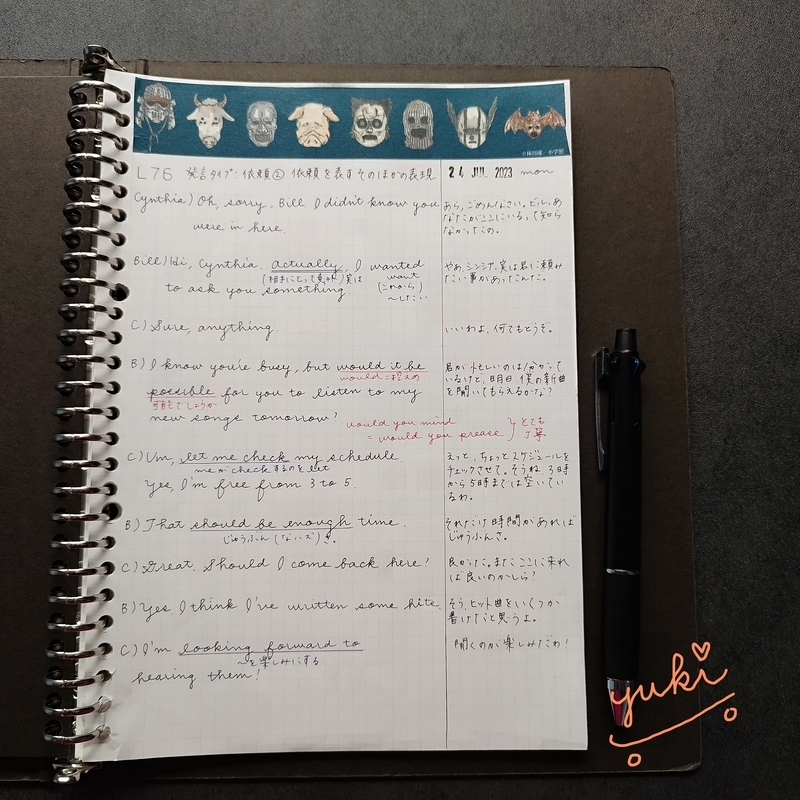 ©林田球/小学館
L76 発言タイプ:依頼② 依頼を表すそのほかの表現
24 JUL 2023 mon
Cynthia) Oh, sorry. Bill I didn't know you
were in here.
あら、ごめんなさい。ビル、あ
なたがここにいるって知ら
なかったの。
Bill) Hi, Cynthia. actually, I wanted
(相手にとって意外) 実は
want
to ask you something.
(これから)
〜したい
やあ、シンシア、実は君に頼み
たい事があったんだ。
C) Sure, anything.
いいわよ、何でもどうぞ。
B) I know you're busy, but would it be
would=控えめ
possible for you to listen to my
可能でしょうか
new songs tomorrow?
would you mind
= would you prease
とても
丁寧
君が忙しいのは分かって
いるけど、明日、僕の新曲
を聞いてもらえるかな?
C) Um, let me check my schedule
meがcheckするのをlet
Yes, I'm free from 3 to 5.
えっと、ちょっとスケジュールを
チェックさせて。そうね、3時
から5時までは空いてい
るわ。
B) That should be enough time.
じゅうぶん(なハズ)さ。
それだけ時間があれば
じゅうぶんさ。
C) Great. Should I come back here?
良かった。またここに来れ
ば良いのかしら?
B) Yes I think I've written some hits.
そう、ヒット曲をいくつか
書けたと思うよ。
C) I'm looking forward to
〜を楽しみにする
hearing them!
聞くのが楽しみだわ!
yuki